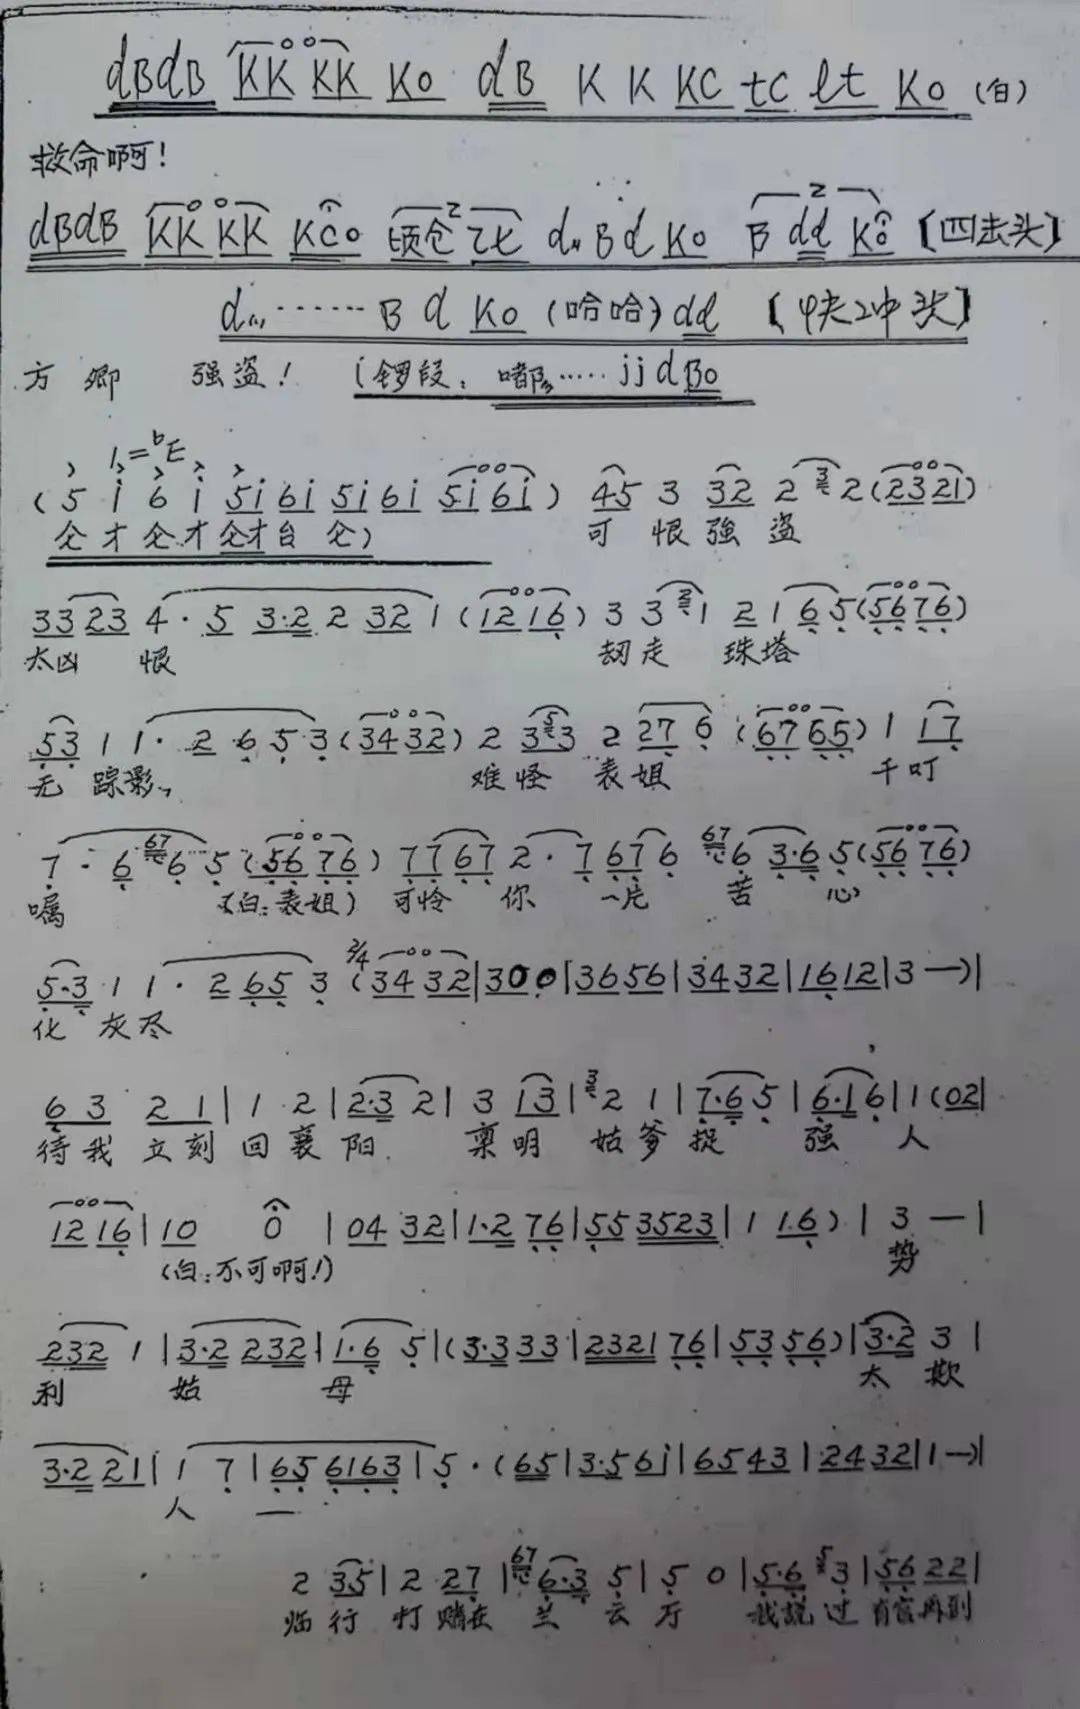 dBdB KK KK K0 dB K K KC tC lt K0 (白)
救命啊!
dBdB KK KK KC0 顷仓 乙七 d,, B d K0 B dd K0 【四击头】
d,,, …… B d K0 (哈哈) dd 【快冲头】
方卿 强盗! (锣段: 嘟…… jj d B0
1=bE
(5 i 6 i 5i 6i 5i 6i 5i 6i) 45 3 32 2 3 2 (2321)
仑 才 仑 才 仑才台 仑) 可 恨 强 盗
33 23 4· 5 3·2 2 32 1 (12 16) 3 3 2 1 2 1 6 5 (56 76)
太凶 恨 劫 走 珠塔
53 1 1· 2 6 5 3 (34 32) 2 3 5 3 2 27 6 (67 65) 1 17
无 踪影, 难怪 表姐 千叮
7· 6 67 6 5 (56 76) 77 67 2· 7 67 6 67 6 3·6 5 (56 76)
嘱 (白:表姐) 可怜 你 一片 苦 心
5·3 1 1· 2 65 3 2/4 (34 32 | 30 0 | 36 56 | 34 32 | 16 12 | 3 —) |
化 灰尽
6 3 2 1 | 1 2 | 2·3 2 | 3 13 | 3 2 1 | 7·6 5 | 6·1 6 | 1 (02 |
待我 立刻 回襄 阳 禀明 姑爹 捉 强 人
12 16 | 10 0 | 04 32 | 1·2 76 | 55 3523 | 1 1.6) | 3 — |
(白:不可啊!) 势
232 1 | 3·2 232 | 1·6 5 | (3·3 33 | 2321 76 | 53 56) | 3·2 3 |
利 姑 母 太 欺
3·2 21 | 1 7 | 65 6163 | 5· (65 | 3·5 6i | 65 43 | 24 32 | 1 —) |
人 —
2 35 | 2 27 | 67 6·3 5 | 5 0 | 5·6 5 3 | 56 22 |
临行 打赌在 兰 云 厅 我说 过 肯官再到